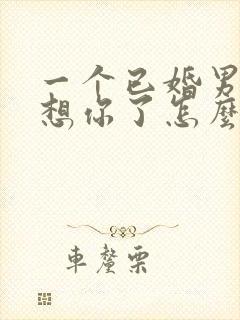 一个已婚男
想你了怎麼
車釐栗